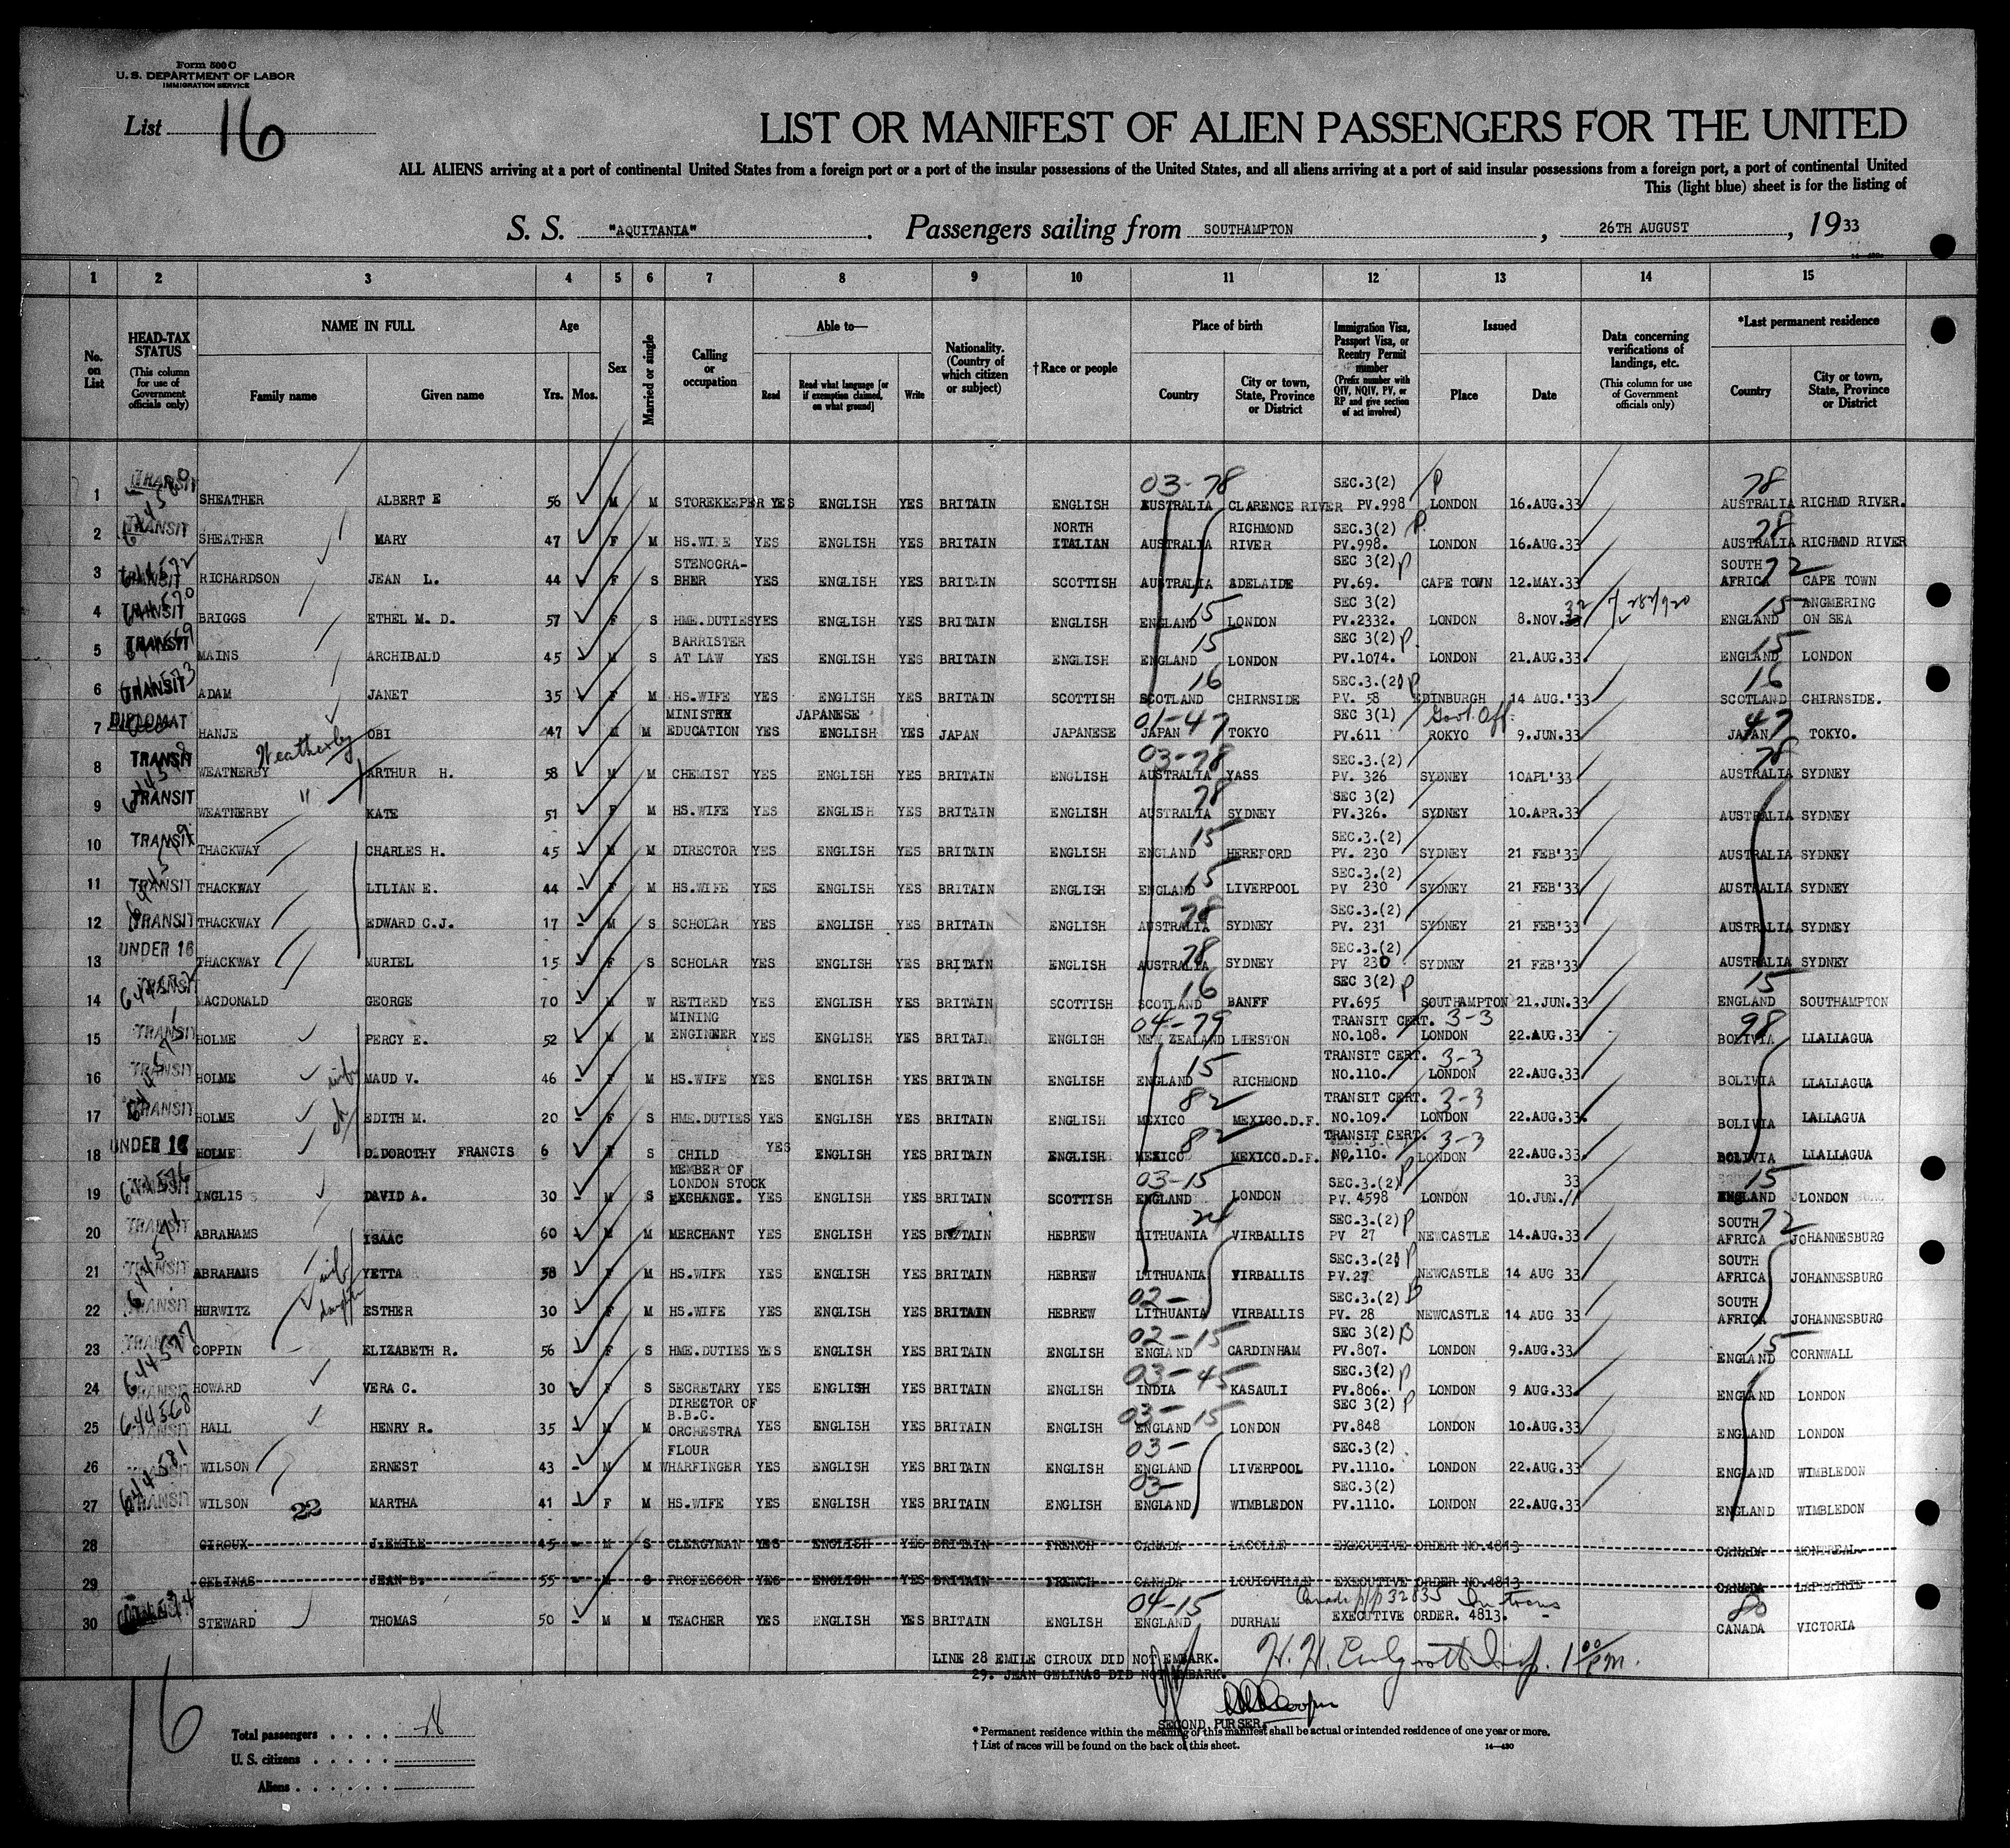 Form 500 C
U. S. DEPARTMENT OF LABOR
IMMIGRATION SERVICE
List 16
LIST OR MANIFEST OF ALIEN PASSENGERS FOR THE UNITED
ALL ALIENS arriving at a port of continental United States from a foreign port or a port of the insular possessions of the United States, and all aliens arriving at a port of said insular possessions from a foreign port, a port of continental United
This (light blue) sheet is for the listing of
S. S. "AQUITANIA". Passengers sailing from SOUTHAMPTON, 26TH AUGUST, 1933
1 2 3 4 5 6 7 8 9 10 11 12 13 14 15
No. on List
HEAD-TAX STATUS (This column for use of Government officials only)
NAME IN FULL Family name Given name
Age Yrs. Mos.
Sex
Married or single
Calling or occupation
Able to— Read Read what language [or if exemption claimed, on what ground] Write
Nationality. (Country of which citizen or subject)
†Race or people
Place of birth Country City or town, State, Province or District
Immigration Visa, Passport Visa, or Reentry Permit number (Prefix number with QIV, NQIV, PV, or RP and give section of act involved)
Issued Place Date
Data concerning verifications of landings, etc. (This column for use of Government officials only)
*Last permanent residence Country City or town, State, Province or District
1 TRANSIT SHEATHER ALBERT E 56 M M STOREKEEPER YES ENGLISH YES BRITAIN ENGLISH 03-78 AUSTRALIA CLARENCE RIVER SEC.3(2) PV.998 P LONDON 16.AUG.33 78 AUSTRALIA RICHMD RIVER.
2 TRANSIT SHEATHER MARY 47 F M HS.WIFE YES ENGLISH YES BRITAIN NORTH ITALIAN AUSTRALIA RICHMOND RIVER SEC.3(2) PV.998. P LONDON 16.AUG.33 78 AUSTRALIA RICHMND RIVER
3 TRANSIT RICHARDSON JEAN L. 44 F S STENOGRA-PHER YES ENGLISH YES BRITAIN SCOTTISH AUSTRALIA ADELAIDE SEC 3(2) PV.69. P CAPE TOWN 12.MAY.33 SOUTH AFRICA 72 CAPE TOWN
4 TRANSIT BRIGGS ETHEL M. D. 57 F S HME.DUTIES YES ENGLISH YES BRITAIN ENGLISH 15 ENGLAND LONDON SEC 3(2) PV.2332. LONDON 8.NOV.32 15 ENGLAND ANGMERING ON SEA
5 TRANSIT MAINS ARCHIBALD 45 M S BARRISTER AT LAW YES ENGLISH YES BRITAIN ENGLISH 15 ENGLAND LONDON SEC 3(2) PV.1074. P. LONDON 21.AUG.33. 15 ENGLAND LONDON
6 TRANSIT ADAM JANET 35 F M HS.WIFE YES ENGLISH YES BRITAIN SCOTTISH 16 SCOTLAND CHIRNSIDE SEC.3.(2) PV. 58 P EDINBURGH 14 AUG.'33 16 SCOTLAND CHIRNSIDE.
7 DIPLOMAT HANJE OBI 47 M M MINISTRY EDUCATION YES JAPANESE ENGLISH YES JAPAN JAPANESE 01-47 JAPAN TOKYO SEC 3(1) PV.611 Govt. Off. ROKYO 9.JUN.33 47 JAPAN TOKYO.
8 TRANSIT WEATNERBY Weatherby ARTHUR H. 58 M M CHEMIST YES ENGLISH YES BRITAIN ENGLISH 03-78 AUSTRALIA YASS SEC.3.(2) PV. 326 SYDNEY 10APL'33 78 AUSTRALIA SYDNEY
9 TRANSIT WEATNERBY " KATE 51 F M HS.WIFE YES ENGLISH YES BRITAIN ENGLISH 78 AUSTRALIA SYDNEY SEC 3(2) PV.326. SYDNEY 10.APR.33 AUSTRALIA SYDNEY
10 TRANSIT THACKWAY CHARLES H. 45 M M DIRECTOR YES ENGLISH YES BRITAIN ENGLISH 15 ENGLAND HEREFORD SEC.3.(2) PV. 230 SYDNEY 21 FEB'33 AUSTRALIA SYDNEY
11 TRANSIT THACKWAY LILIAN E. 44 - F M HS.WIFE YES ENGLISH YES BRITAIN ENGLISH 15 ENGLAND LIVERPOOL SEC.3.(2) PV 230 SYDNEY 21 FEB'33 AUSTRALIA SYDNEY
12 TRANSIT THACKWAY EDWARD C.J. 17 - M S SCHOLAR YES ENGLISH YES BRITAIN ENGLISH 78 AUSTRALIA SYDNEY SEC.3.(2) PV. 231 SYDNEY 21 FEB'33 AUSTRALIA SYDNEY
13 UNDER 16 THACKWAY MURIEL 15 F S SCHOLAR YES ENGLISH YES BRITAIN ENGLISH 78 AUSTRALIA SYDNEY SEC.3.(2) PV 230 SYDNEY 21 FEB'33 AUSTRALIA SYDNEY
14 TRANSIT MACDONALD GEORGE 70 M W RETIRED YES ENGLISH YES BRITAIN SCOTTISH 16 SCOTLAND BANFF SEC 3(2) PV.695 P SOUTHAMPTON 21.JUN.33 15 ENGLAND SOUTHAMPTON
15 TRANSIT HOLME PERCY E. 52 M M MINING ENGINEER YES ENGLISH YES BRITAIN ENGLISH 04-79 NEW ZEALAND LIESTON TRANSIT CERT. NO.108. 3-3 LONDON 22.AUG.33 98 BOLIVIA LLALLAGUA
16 TRANSIT HOLME wife MAUD V. 46 - F M HS.WIFE YES ENGLISH YES BRITAIN ENGLISH 15 ENGLAND RICHMOND TRANSIT CERT. NO.110. 3-3 LONDON 22.AUG.33 BOLIVIA LLALLAGUA
17 TRANSIT HOLME EDITH M. 20 - F S HME.DUTIES YES ENGLISH YES BRITAIN ENGLISH 82 MEXICO MEXICO.D.F. TRANSIT CERT. NO.109. 3-3 LONDON 22.AUG.33. BOLIVIA LALLAGUA
18 UNDER 16 HOLME D.DOROTHY FRANCIS 6 F S CHILD YES ENGLISH YES BRITAIN ENGLISH 82 MEXICO MEXICO.D.F. TRANSIT CERT. NO.110. 3-3 LONDON 22.AUG.33 BOLIVIA LLALLAGUA
19 TRANSIT INGLIS DAVID A. 30 - M S MEMBER OF LONDON STOCK EXCHANGE. YES ENGLISH YES BRITAIN SCOTTISH 03-15 ENGLAND LONDON SEC.3.(2) PV. 4598 P LONDON 10.JUN. 33 15 ENGLAND LONDON
20 TRANSIT ABRAHAMS ISAAC 60 M M MERCHANT YES ENGLISH YES BRITAIN HEBREW LITHUANIA VIRBALLIS SEC.3.(2) PV 27 P NEWCASTLE 14.AUG.33 SOUTH AFRICA 72 JOHANNESBURG
21 TRANSIT ABRAHAMS wife YETTA 58 F M HS.WIFE YES ENGLISH YES BRITAIN HEBREW LITHUANIA VIRBALLIS SEC.3.(2) PV.27 P NEWCASTLE 14 AUG 33 SOUTH AFRICA JOHANNESBURG
22 TRANSIT HURWITZ daughter ESTHER 30 F M HS.WIFE YES ENGLISH YES BRITAIN HEBREW 02- LITHUANIA VIRBALLIS SEC.3.(2) PV. 28 P NEWCASTLE 14 AUG 33 SOUTH AFRICA JOHANNESBURG
23 TRANSIT COPPIN ELIZABETH R. 56 F S HME.DUTIES YES ENGLISH YES BRITAIN ENGLISH 02-15 ENGLAND CARDINHAM SEC 3(2) PV.807. LONDON 9.AUG.33 15 ENGLAND CORNWALL
24 TRANSIT HOWARD VERA C. 30 F S SECRETARY YES ENGLISH YES BRITAIN ENGLISH 03-45 INDIA KASAULI SEC.3(2) PV.806. P LONDON 9 AUG.33. ENGLAND LONDON
25 644568 TRANSIT HALL HENRY R. 35 M M DIRECTOR OF B.B.C. ORCHESTRA YES ENGLISH YES BRITAIN ENGLISH 03-15 ENGLAND LONDON SEC 3(2) PV.848 P LONDON 10.AUG.33 ENGLAND LONDON
26 644581 WILSON ERNEST 43 - M M FLOUR WHARFINGER YES ENGLISH YES BRITAIN ENGLISH 03- ENGLAND LIVERPOOL SEC.3(2) PV.1110. LONDON 22.AUG.33 ENGLAND WIMBLEDON
27 TRANSIT WILSON 22 MARTHA 41 F M HS.WIFE YES ENGLISH YES BRITAIN ENGLISH 03- ENGLAND WIMBLEDON SEC.3(2) PV.1110. LONDON 22.AUG.33 ENGLAND WIMBLEDON
28 GIROUX J.EMILE 45 - M S CLERGYMAN YES ENGLISH YES BRITAIN FRENCH CANADA LACOLLE EXECUTIVE ORDER NO.4813 CANADA MONTREAL
29 GELINAS JEAN B. 55 - M S PROFESSOR YES ENGLISH YES BRITAIN FRENCH CANADA LOUISVILLE EXECUTIVE ORDER NO.4813 CANADA LAPRAIRIE
30 STEWARD THOMAS 50 - M M TEACHER YES ENGLISH YES BRITAIN ENGLISH 04-15 ENGLAND DURHAM Canada p/p 32835 In trans EXECUTIVE ORDER. 4813. - 80 CANADA VICTORIA
LINE 28 EMILE GIROUX DID NOT EMBARK.
29. JEAN GELINAS DID NOT EMBARK.
H. H. Insp. 1 00 PM.
Cooper
SECOND PURSER.
16
Total passengers . . . .
U. S. citizens . . . . .
Aliens . . . . . .
* Permanent residence within the meaning of this manifest shall be actual or intended residence of one year or more.
† List of races will be found on the back of this sheet.
14—430